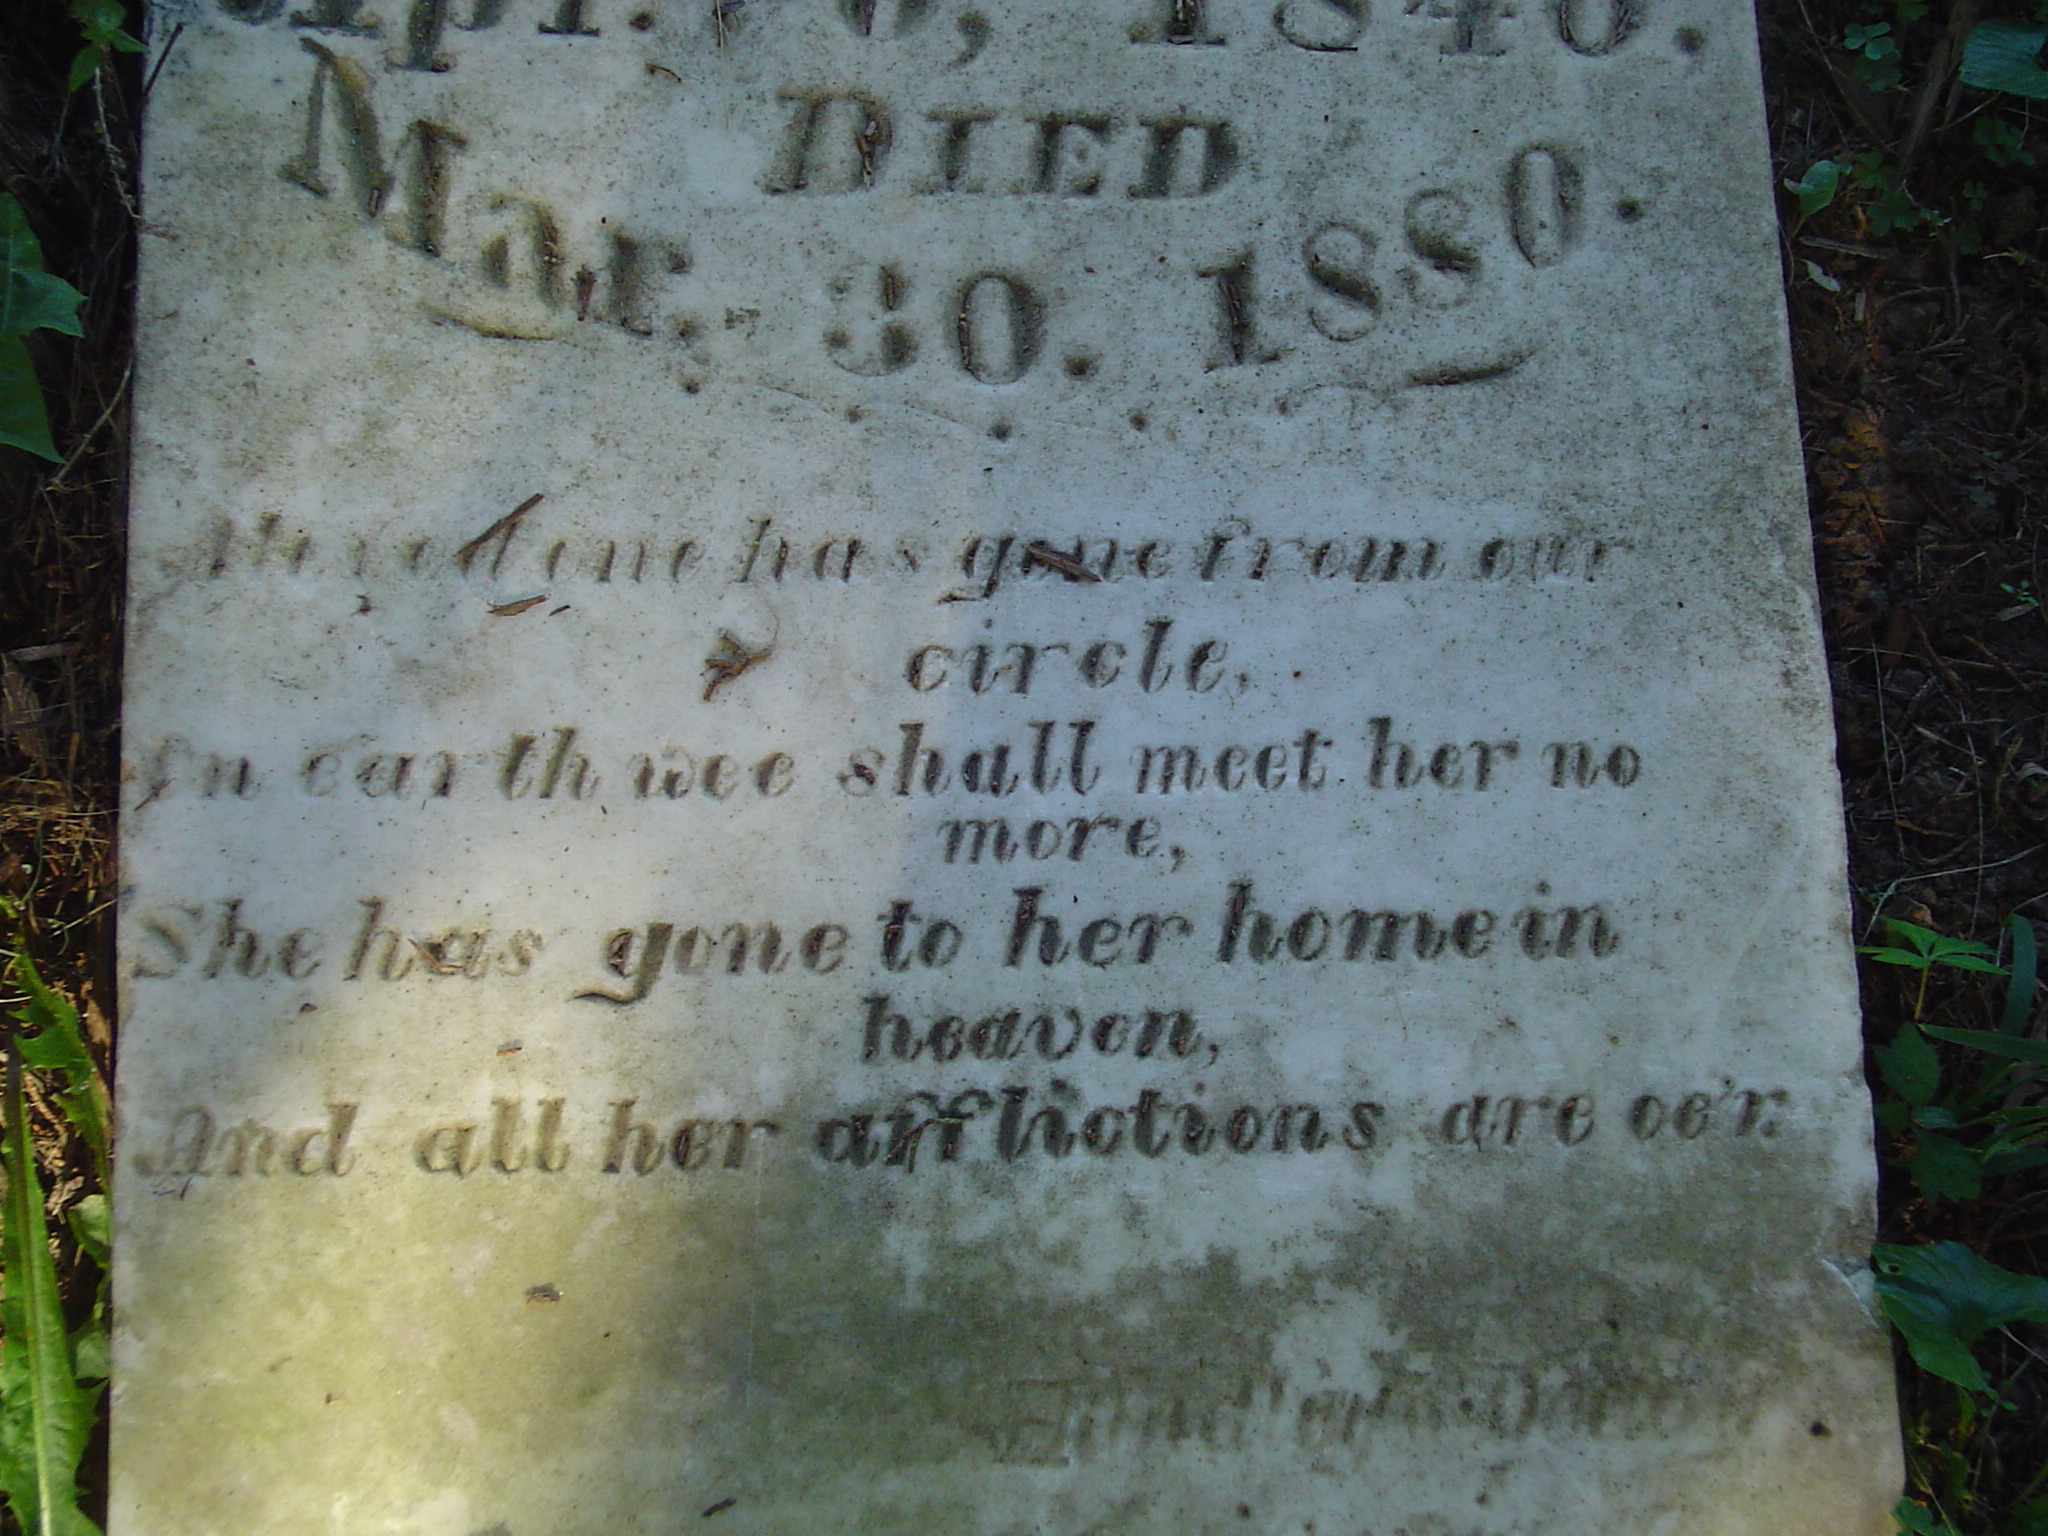 1840,
DIED
Mar. 30. 1880.
one has gone from our
circle,
On earth wee shall meet her no
more,
She has gone to her home in
heaven,
And all her afflictions are oe'r.